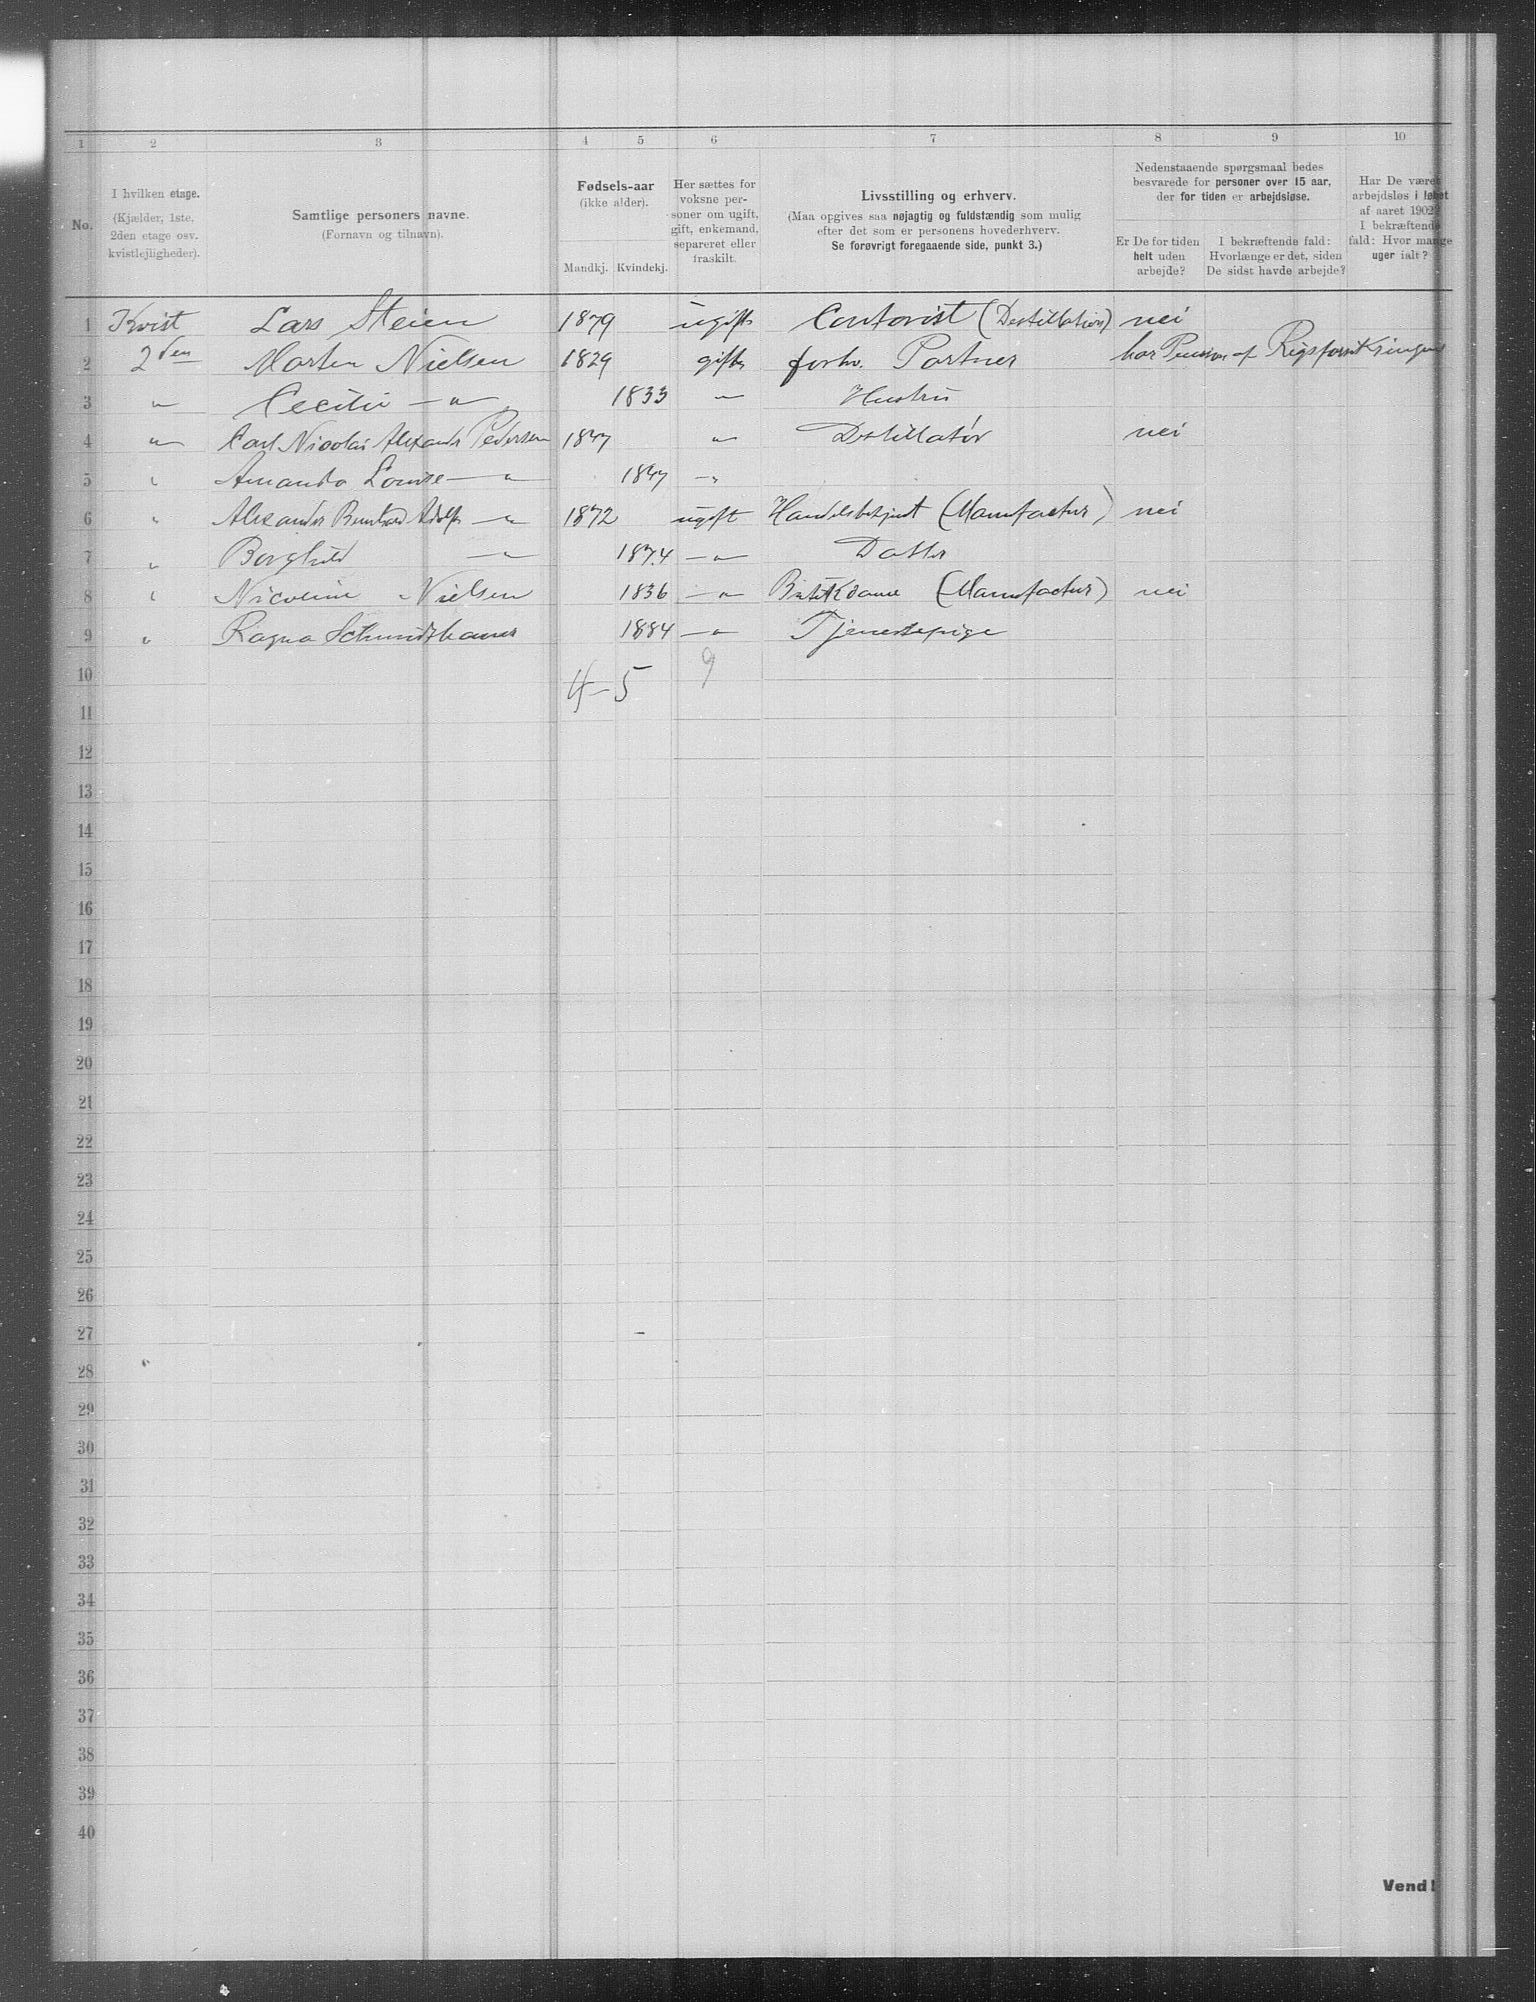 1 2 3 4 5 6 7 8 9 10
No.
I hvilken etage.
(Kjælder, 1ste,
2den etage osv.
kvistlejligheder).
Samtlige personers navne.
(Fornavn og tilnavn).
Fødsels-aar
(ikke alder).
Mandkj. Kvindekj.
Her sættes for
voksne per-
soner om ugift,
gift, enkemand,
separeret eller
fraskilt.
Livsstilling og erhverv.
(Maa opgives saa nøjagtig og fuldstændig som mulig
efter det som er personens hovederhverv.
Se forøvrigt foregaaende side, punkt 3.)
Nedenstaaende spørgsmaal bedes
besvarede for personer over 15 aar,
der for tiden er arbejdsløse.
Er De for tiden
helt uden
arbejde?
I bekræftende fald:
Hvorlænge er det, siden
De sidst havde arbejde?
Har De været
arbejdsløs i løbet
af aaret 1902?
I bekræftende
fald: Hvor mange
uger ialt?
1 Kvist Lars Steien 1879 ugift Contorist (Destillation) nei
2 2den Morten Nielsen 1829 gift forhv. Partner har Pension af
3 " Cecilie " 1833 " Hustru
4 " Carl Nicolai Alexander Pedersen 1847 " Destillatør nei
5 " Amanda Lovise " 1847 "
6 " Alexander Bernhard Adolf " 1872 ugift Handelsbetjent (Manufactur) nei
7 " Borghild " 1874 " Datter
8 " Nicoline Nielsen 1836 " Butikdame (Manufactur) nei
9 " Ragna 1884 " Tjenestepige
10 4-5 9
11
12
13
14
15
16
17
18
19
20
21
22
23
24
25
26
27
28
29
30
31
32
33
34
35
36
37
38
39
40
Vend!